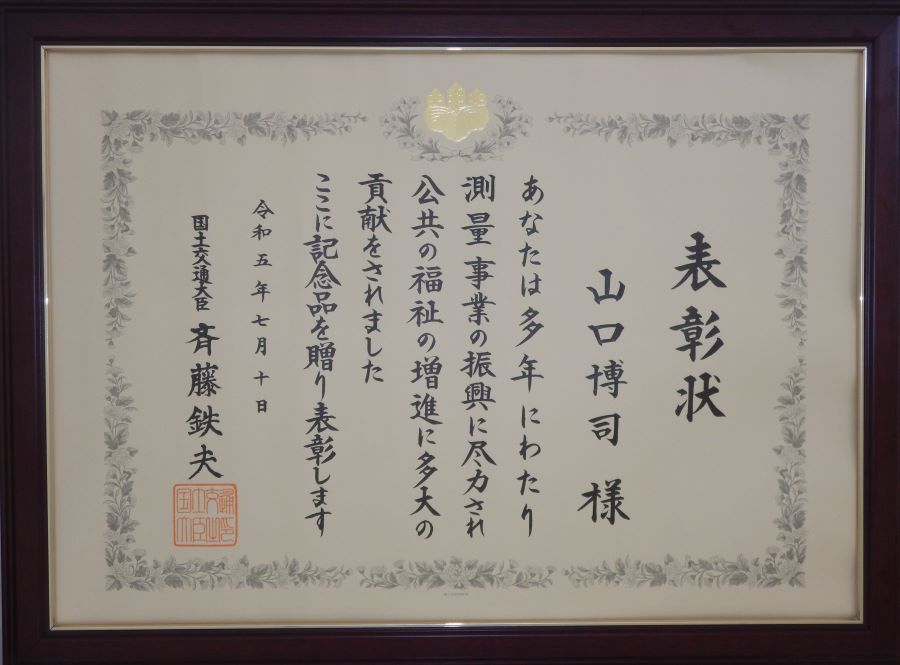 表彰状
山口博司 様
あなたは多年にわたり
測量事業の振興に尽力され
公共の福祉の増進に多大の
貢献をされました
ここに記念品を贈り表彰します
令和五年七月十日
国土交通大臣 斉藤鉄夫
国土交通大臣之印